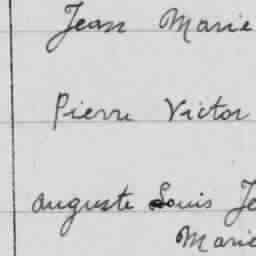 Jean Marie
Pierre Victor
Auguste Louis Je
Marie